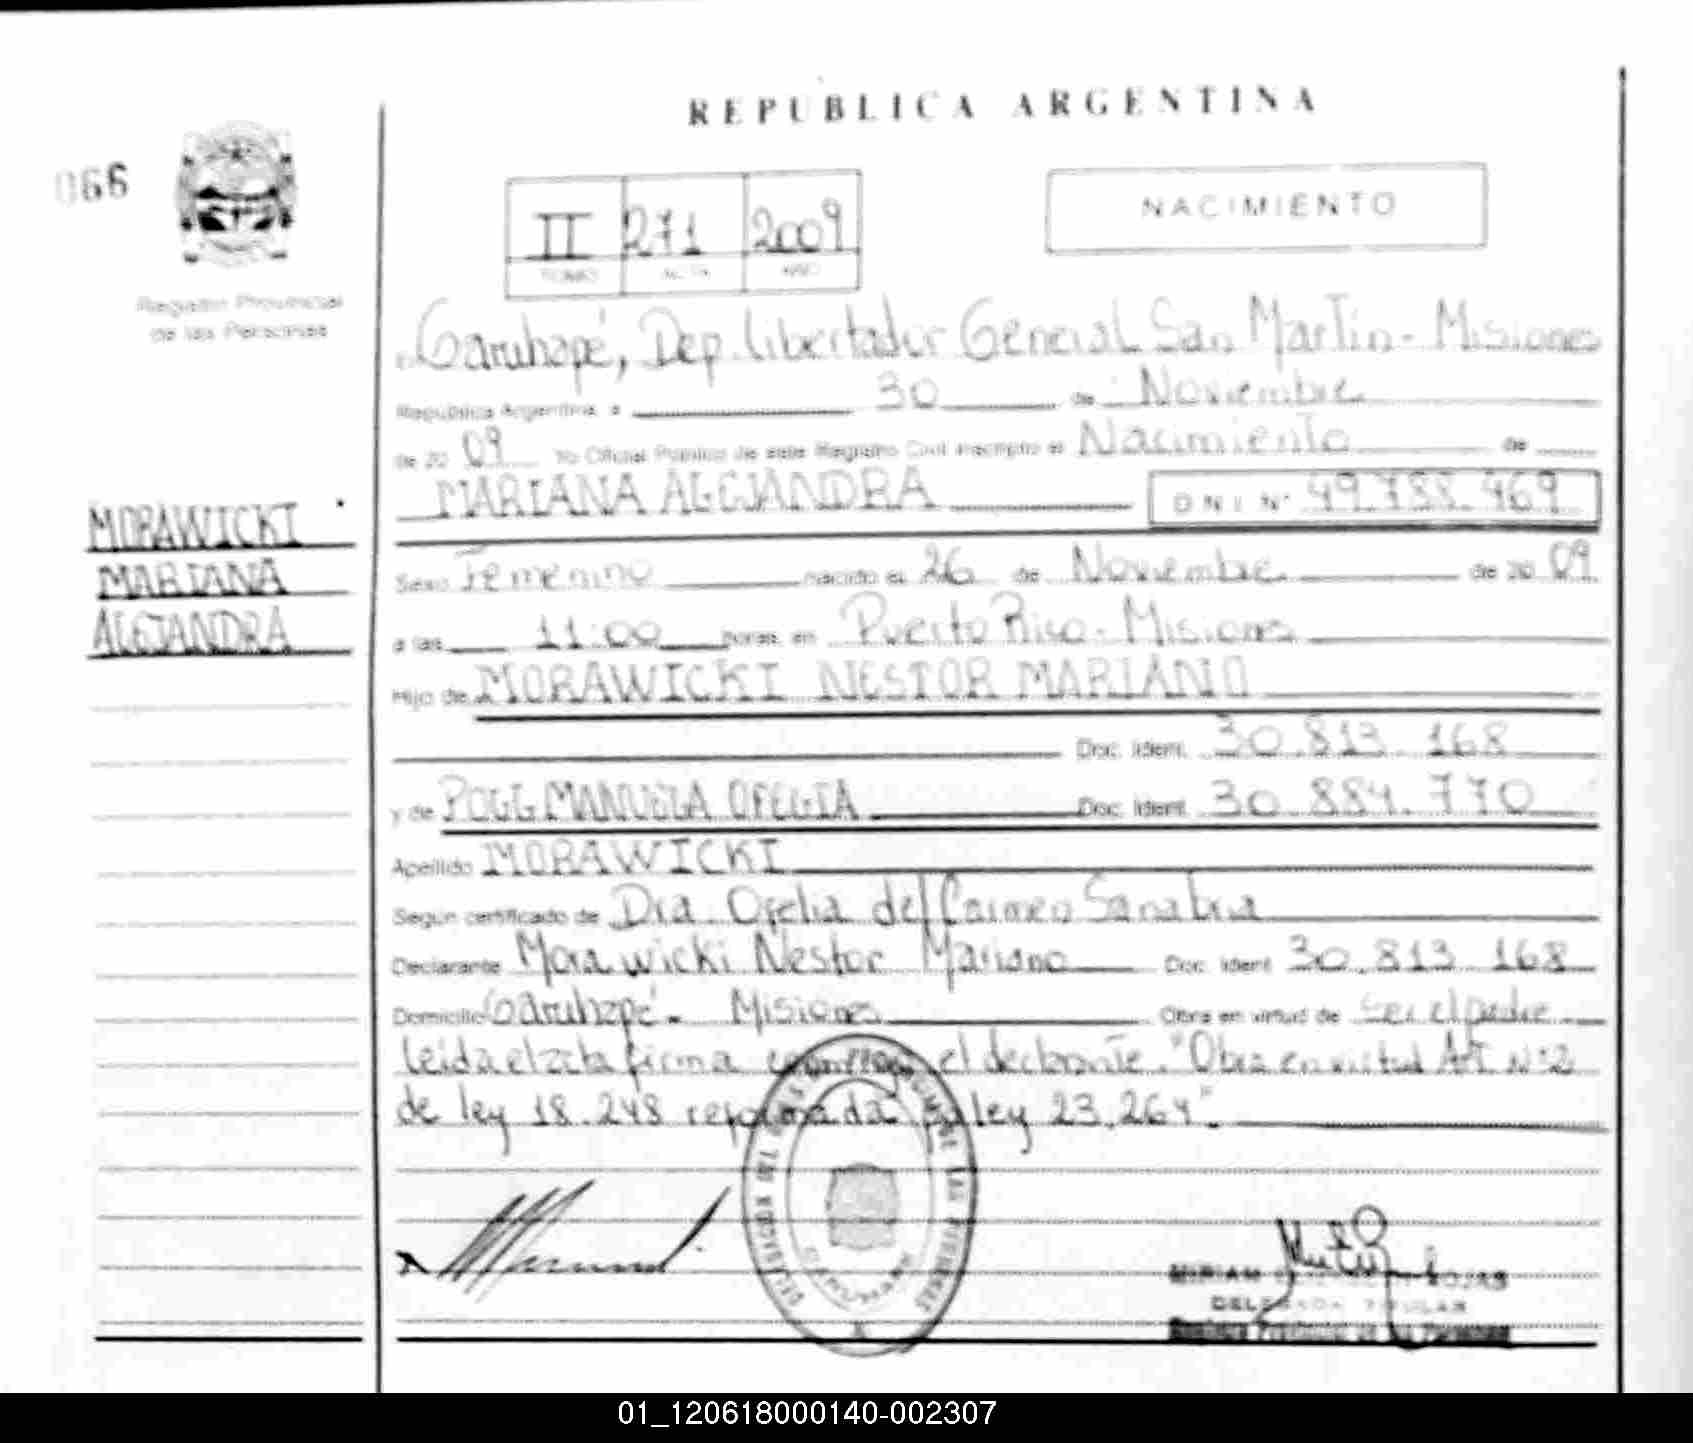 REPUBLICA ARGENTINA
066
Registro Provincial
de las Personas
II 271 2009
TOMO ACTA AÑO
NACIMIENTO
En Garuhapé, Dep. Libertador General San Martin - Misiones
República Argentina, a 30 de Noviembre
de 20 09 Yo Oficial Público de este Registro Civil inscripto el Nacimiento de
MARIANA ALEJANDRA D N I Nº 49.788.469
MORAWICKI
MARIANA
ALEJANDRA
Sexo Femenino nacido el 26 de Noviembre de 20 09
a las 11:00 horas en Puerto Rico - Misiones
Hijo de MORAWICKI NESTOR MARIANO
Doc. Ident. 30.813.168
y de POLL MANUELA OFELIA Doc. Ident. 30.884.770
Apellido MORAWICKI
Según certificado de Dra. Ofelia del Carmen Sanabria
Declarante Morawicki Nestor Mariano Doc. Ident. 30.813.168
Domicilio Garuhapé - Misiones Obra en virtud de ser el padre
leida el acta firma conmigo el declarante. "Obra en virtud Art. Nº 2
de ley 18.248 reformada ley 23.264".
MIRIAM ROJAS
DELEGADA TITULAR
Registro Provincial de las Personas
01_120618000140-002307